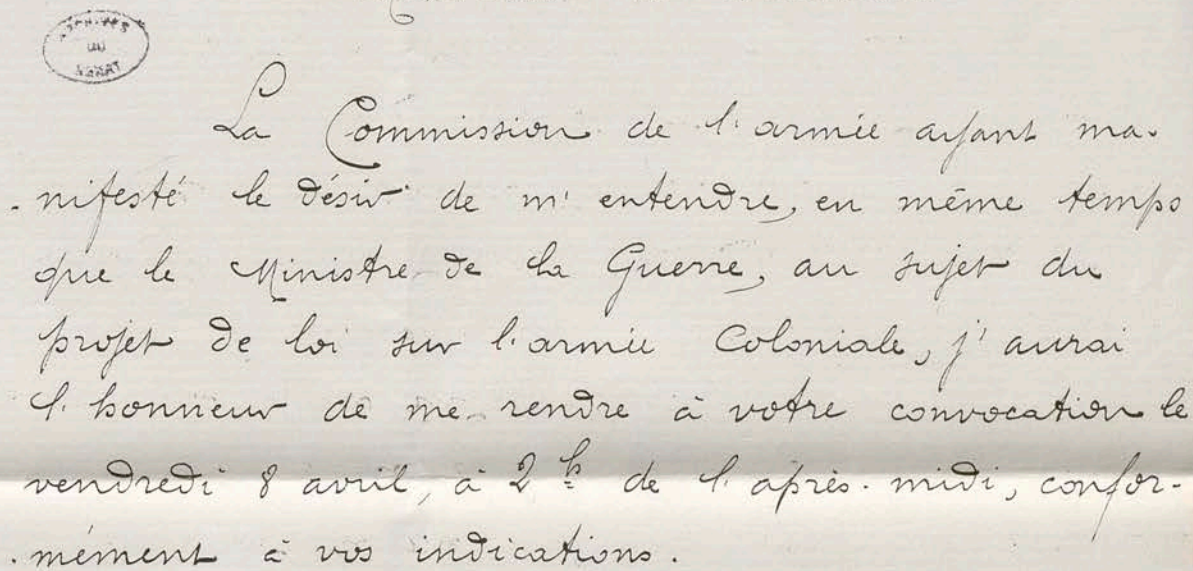 ARCHIVES
DU
SÉNAT
La Commission de l'armée ayant ma-
-nifesté le désir de m'entendre, en même temps
que le Ministre de la Guerre, au sujet du
projet de loi sur l'armée Coloniale, j'aurai
l'honneur de me rendre à votre convocation le
vendredi 8 avril, à 2 h de l'après-midi, confor-
-mément à vos indications.